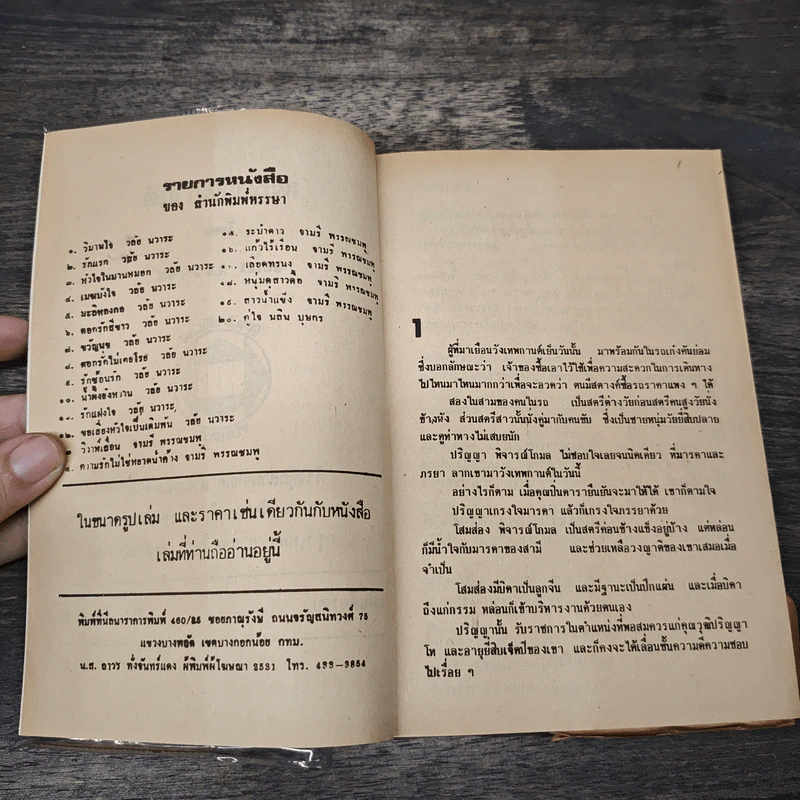 รายการหนังสือ
ของ สำนักพิมพ์หรรษา
๑. วิมานใจ วลัย นวาระ
๒. รักแรก วลัย นวาระ
๓. หัวใจในม่านหมอก วลัย นวาระ
๔. เมฆบังใจ วลัย นวาระ
๕. มะลิหลงกอ วลัย นวาระ
๖. ดอกรักสีขาว วลัย นวาระ
๗. ขวัญนุช วลัย นวาระ
๘. ดอกรักไม่เคยโรย วลัย นวาระ
๙. รักซ้อนรัก วลัย นวาระ
๑๐. น้ำผึ้งยังหวาน วลัย นวาระ
๑๑. รักแฝงใจ วลัย นวาระ
๑๒. ขอเสียงหัวใจเป็นเดิมพัน วลัย นวาระ
วิวาห์เลื่อน จามรี พรรณชมพู
ความรักไม่ใช่หยาดน้ำค้าง จามรี พรรณชมพู
๑๕. ระบำดาว จามรี พรรณชมพู
๑๖. แก้วไร้เรือน จามรี พรรณชมพู
๑๗. เลือดทรนง จามรี พรรณชมพู
๑๘. หนุ่มดุสาวดื้อ จามรี พรรณชมพู
๑๙. สาวน้ำแข็ง จามรี พรรณชมพู
๒๐. คู่ใจ นลิน บุษกร
ในขนาดรูปเล่ม และราคาเช่นเดียวกันกับหนังสือ
เล่มที่ท่านถืออ่านอยู่นี้
พิมพ์ที่บีฮนาราการพิมพ์ 460/85 ซอยภาณุรังษี ถนนจรัญสนิทวงศ์ 75
แขวงบางพลัด เขตบางกอกน้อย กทม.
น.ส. ถาวร ทั่งจันทร์แดง ผู้พิมพ์ผู้โฆษณา 2531 โทร. 433-3854
1
ผู้ที่มาเยือนวังเทพกานต์เย็นวันนั้น มาพร้อมกันในรถเก๋งคันย่อม
ซึ่งบอกลักษณะว่า เจ้าของซื้อเอาไว้ใช้เพื่อความสะดวกในการเดินทาง
ไปไหนมาไหนมากกว่าเพื่อจะอวดว่า ตนมีสตางค์ซื้อรถราคาแพง ๆ ได้
สองในสามของคนในรถ เป็นสตรีต่างวัยก่อนสตรีคนสูงวัยนั่ง
ข้างหลัง ส่วนสตรีสาวนั้นนั่งคู่มากับคนขับ ซึ่งเป็นชายหนุ่มวัยยี่สิบปลาย
และดูท่าทางไม่เสบยนัก
ปริญญา พิจารณ์โกมล ไม่ชอบใจเลยจนนิดเดียว ที่มารดาและ
ภรรยา ลากเขามาวังเทพกานต์ในวันนี้
อย่างไรก็ตาม เมื่อคุณปิ่นดารายืนยันจะมาให้ได้ เขาก็ตามใจ
ปริญญาเกรงใจมารดา แล้วก็เกรงใจภรรยาด้วย
โสมส่อง พิจารณ์โกมล เป็นสตรีค่อนข้างแข็งอยู่บ้าง แต่หล่อน
ก็มีน้ำใจกับมารดาของสามี และช่วยเหลือวงญาติของเขาเสมอเมื่อ
จำเป็น
โสมส่องมีบิดาเป็นลูกจีน และมีฐานะเป็นปึกแผ่น และเมื่อบิดา
ถึงแก่กรรม หล่อนก็เข้าบริหารงานด้วยตนเอง
ปริญญานั้น รับราชการในตำแหน่งที่พอสมควรแก่คุณวุฒิปริญญา
โท และอายุยี่สิบเจ็ดปีของเขา และก็คงจะได้เลื่อนขั้นความดีความชอบ
ไปเรื่อย ๆ